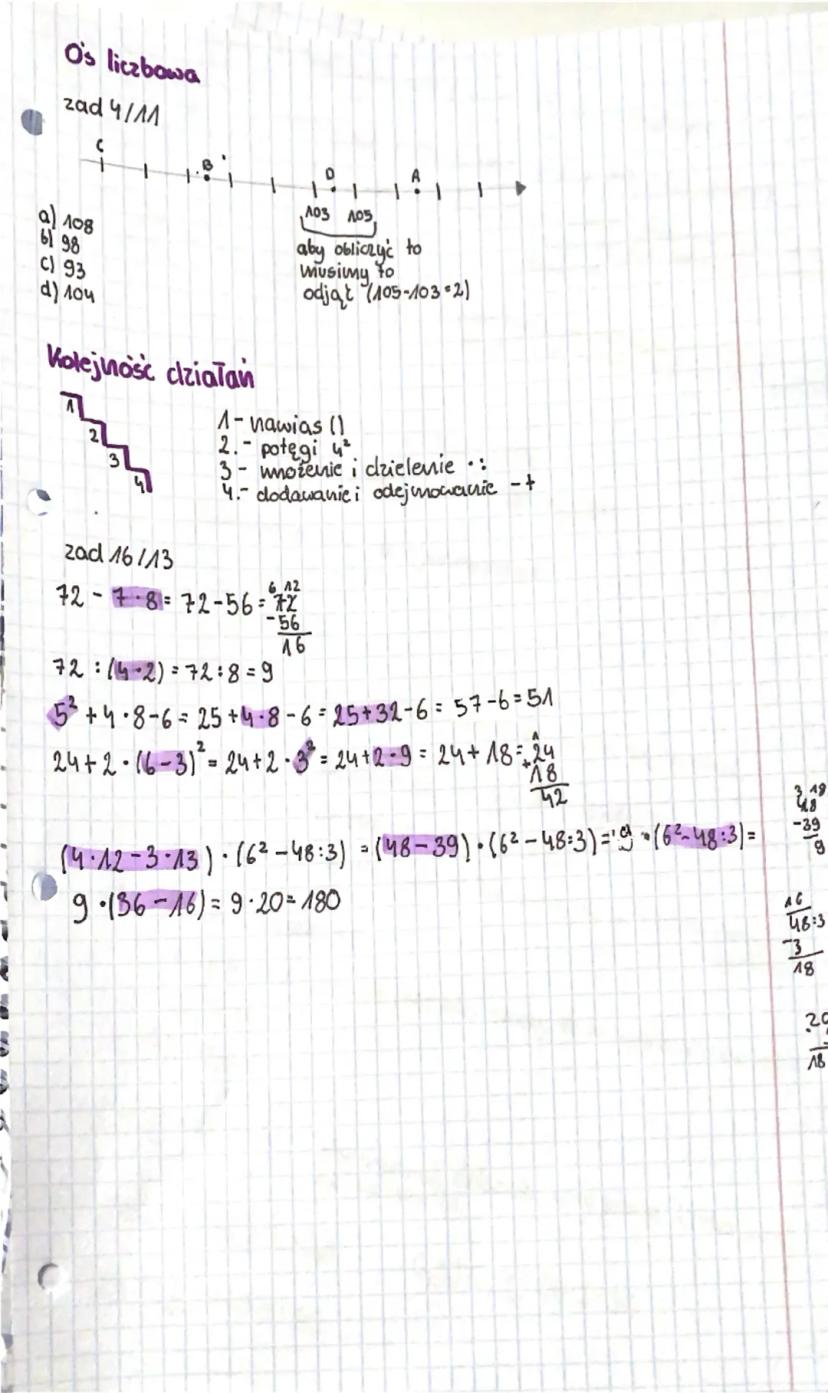 Oś liczbowa
zad 4/11
C B D A
103 105
a) 108
b) 98
c) 93
d) 104
aby obliczyć to
musimy to
odjąć (105-103=2)
Kolejność działań
1
2
3
4
1- nawias ()
2.- potęgi 4²
3- mnożenie i dzielenie · :
4.- dodawanie i odejmowanie -+
zad 16/13
72 - 7·8 = 72-56 = 72
6 12
-56
16
72 : (4·2) = 72:8 = 9
5² + 4·8-6 = 25+4·8-6 = 25+32-6 = 57-6=51
24+2·(6-3)² = 24+2·3² = 24+2·9 = 24+18= 24
1
+18
42
(4·12-3·13)·(6²-48:3) = (48-39)·(6²-48:3)= 9·(6²-48:3)=
9·(36-16)= 9·20=180
3 18
48
-39
9
16
48:3
-3
18
18